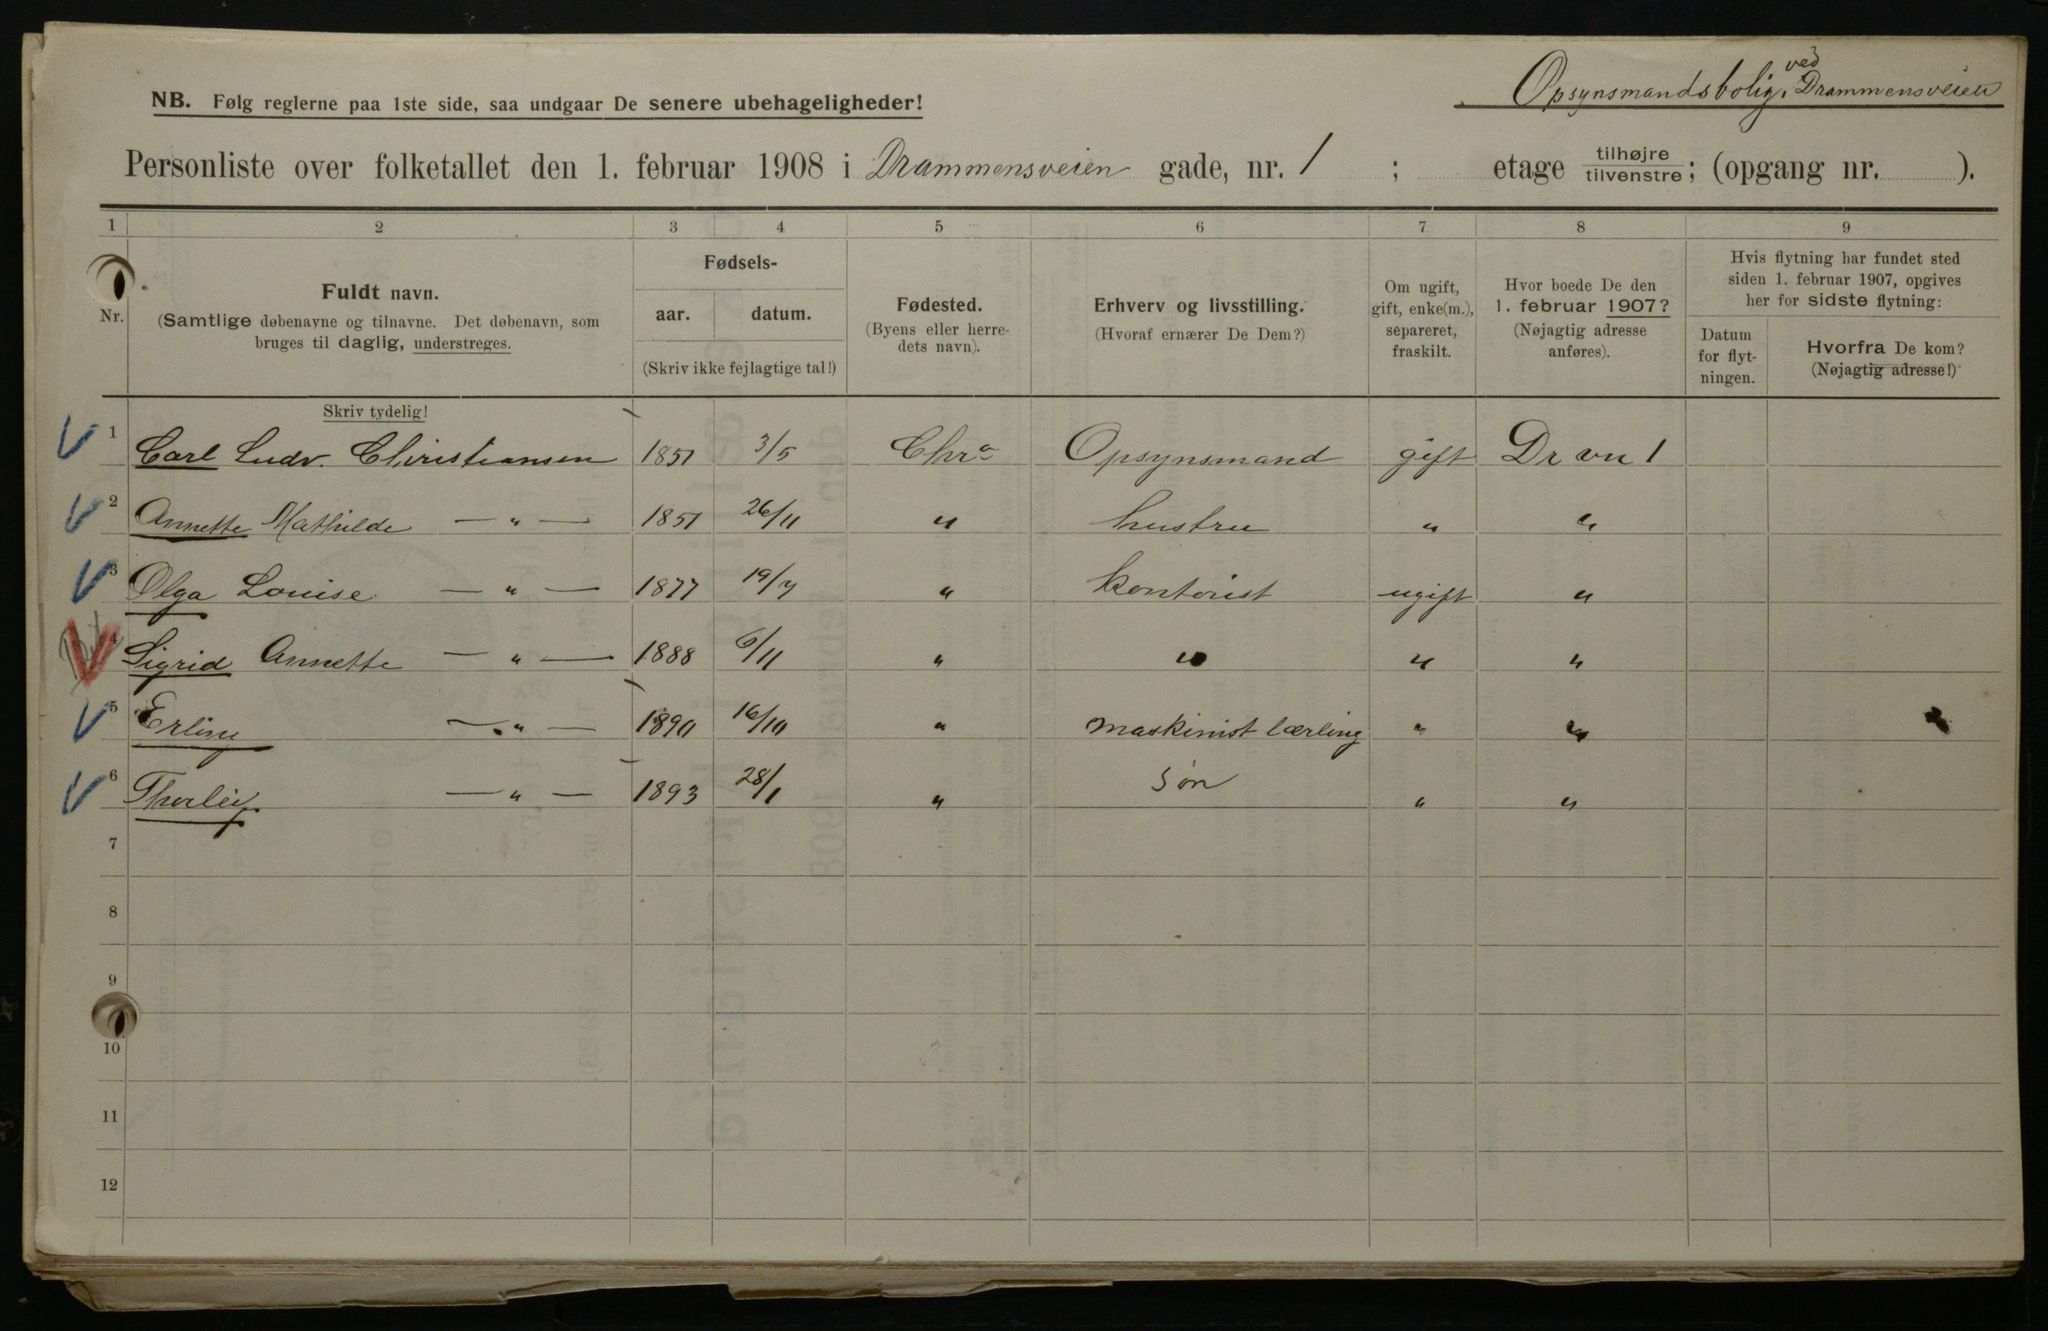 Opsynsmandsbolig ved Drammensveien
NB. Følg reglerne paa 1ste side, saa undgaar De senere ubehageligheder!
Personliste over folketallet den 1. februar 1908 i Drammensveien gade, nr. 1 ; etage tilhøjre tilvenstre; (opgang nr. ).
1 2 3 4 5 6 7 8 9
Nr.
Fuldt navn.
(Samtlige døbenavne og tilnavne. Det døbenavn, som
bruges til daglig, understreges.
Skriv tydelig!
Fødsels-
aar. datum.
(Skriv ikke fejlagtige tal!)
Fødested.
(Byens eller herre-
dets navn).
Erhverv og livsstilling.
(Hvoraf ernærer De Dem?)
Om ugift,
gift, enke(m.),
separeret,
fraskilt.
Hvor boede De den
1. februar 1907?
(Nøjagtig adresse
anføres).
Hvis flytning har fundet sted
siden 1. februar 1907, opgives
her for sidste flytning:
Datum
for flyt-
ningen.
Hvorfra De kom?
(Nøjagtig adresse!)
1 Carl Ludv. Christiansen 1851 3/5 Chra Opsynsmand gift Dr vn 1
2 Annette Mathilde — " — 1851 26/11 " hustru " "
3 Olga Louise — " — 1877 19/7 " kontorist ugift "
4 Sigrid Annette — " — 1888 6/11 " " " "
5 Erling — " — 1890 16/10 " maskinist lærling " "
6 Thorleif — " — 1893 28/1 " Søn " "
7
8
9
10
11
12